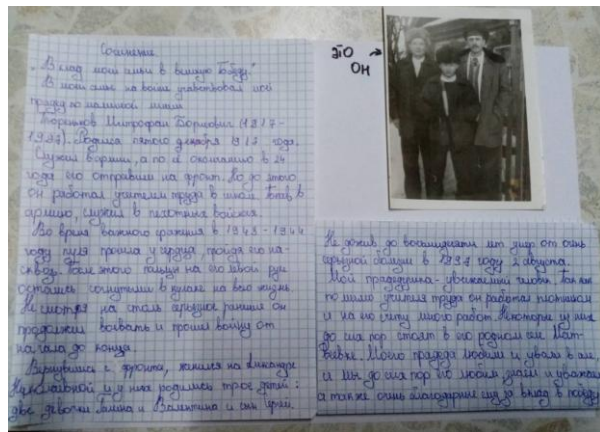 Сочинение
"Вклад моей семьи в великую Победу."
В моей семье на войне участвовал мой
прадед по маминой линии
Митрофан Борисович (1917-
1997). Родился пятого декабря 1917 года.
Служил в армии, а по её окончанию в 24
года его отправили на фронт. Но до этого
он работал учителем труда в школе. Попав в
армию, служил в пехотных войсках.
Во время важного сражения в 1943-1944
году пуля прошла у сердца, пройдя его на-
сквозь. После этого пальцы на его левой руке
остались согнутыми в кулаке на всю жизнь.
Не смотря на столь серьёзное ранение он
продолжил воевать и прошёл войну от
начала до конца.
Вернувшись с фронта, женился на Александре
Николаевной и у них родились трое детей:
две девочки Галина и Валентина и сын
ЭТО →
ОН
Не дожив до восьмидесяти лет умер от очень
серьёзной болезни в 1997 году 2 августа.
Мой прадедушка - уважаемый человек. Так как
помимо учителя труда он работал плотником
и на его счету много работ. Некоторые из них
до сих пор стоят в его родном селе Мат-
веевке. Моего прадеда любили и уважали,
и мы до сих пор его любим, знаем и уважаем
а также очень благодарны ему за вклад в победу